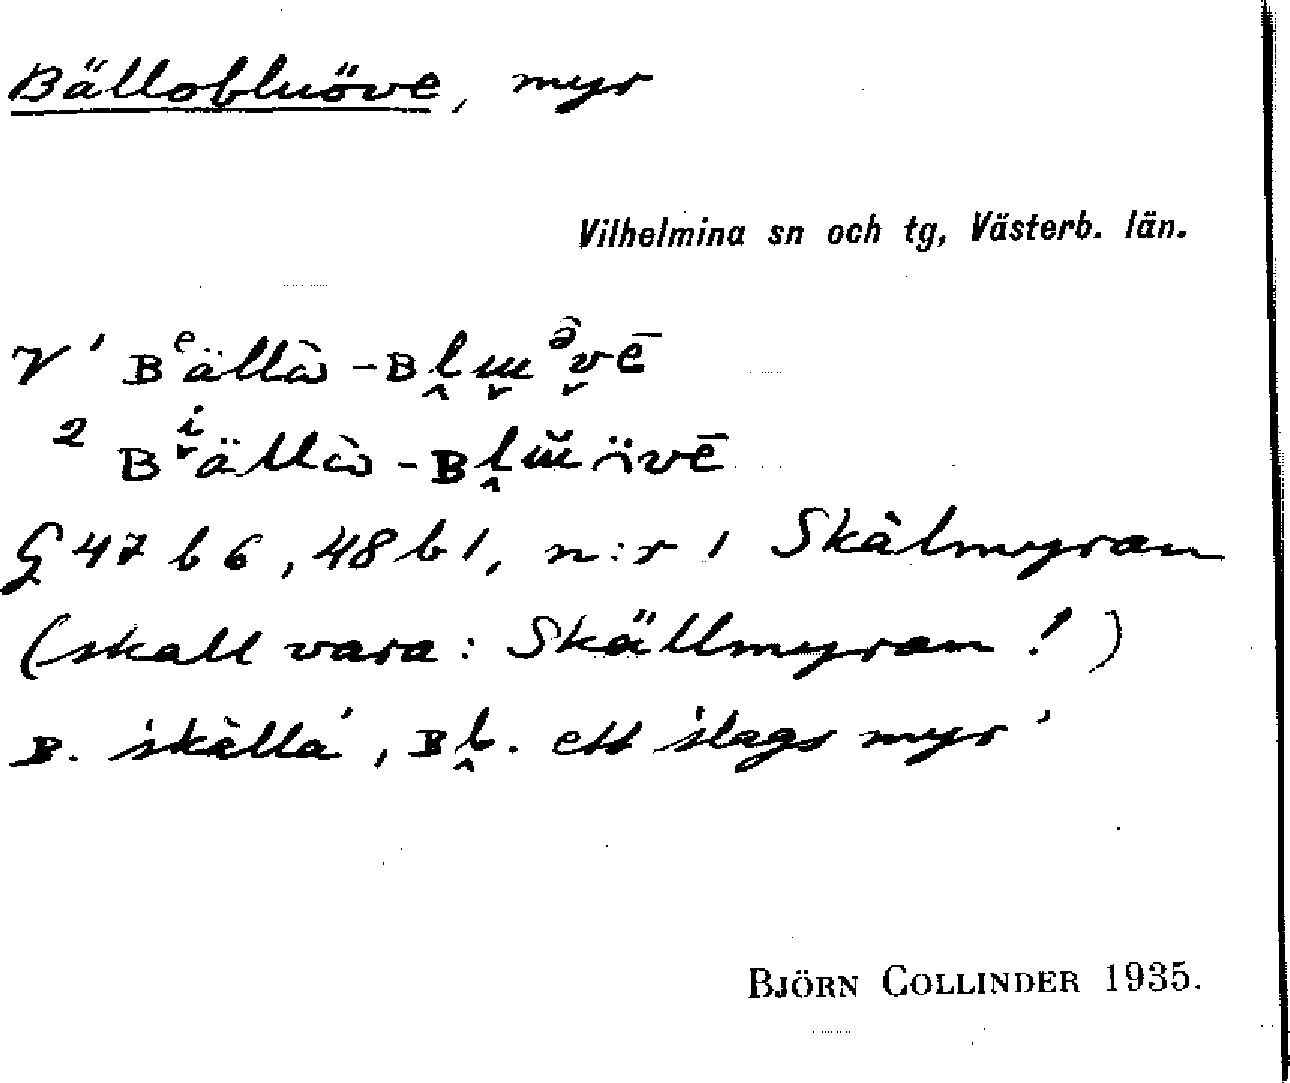 Bällobluöve, myr
Vilhelmina sn och tg, Västerb. län.
V ¹ ʙᵉällɷ̀-ʙḽɯ̬ᵊ̂v̬ē
² ʙⁱ̬ällɷ̀-ʙḽɯ̆övē
G 47 b 6, 48 b 1, n:r 1 Skälmyran
(skall vara: Skällmyran!)
ʙ. 'skälla', ʙḽ. 'ett slags myr'
BJÖRN COLLINDER 1935.